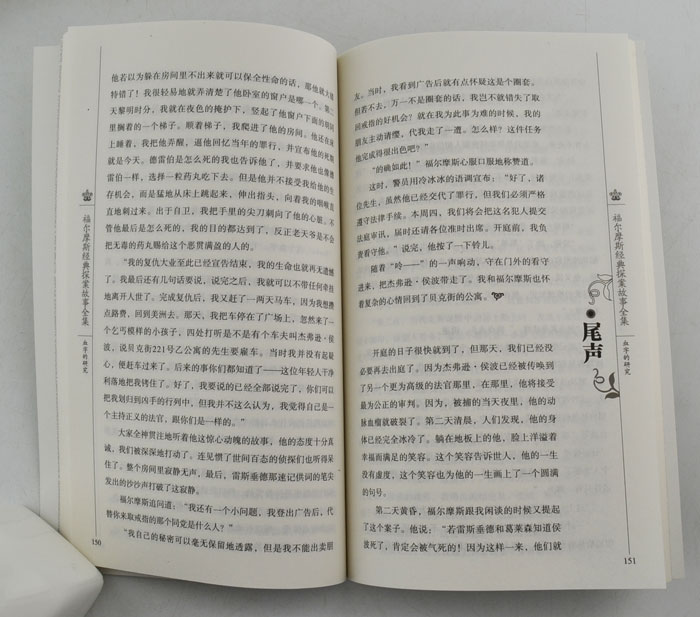 他若以为躲在房间里不出来就可以保全性命的话，那他就大错
特错了！我很轻易地就弄清楚了他卧室的窗户是哪个。第二
天黎明时分，我就在夜色的掩护下，竖起了他窗户下面的胡同
里搁着的一个梯子。顺着梯子，我爬进了他的房间。他还在床
上睡着，我把他弄醒，逼他回忆当年的罪行，并宣布他的死期
就是今天。德雷伯是怎么死的我也告诉他了，并要求他也像德
雷伯一样，选择一粒药丸吃下去。但是他并不接受我给他的生
存机会，而是猛地从床上跳起来，伸出指头，向着我的咽喉直
直地刺过来。出于自卫，我把手里的尖刀刺向了他的心脏。不
管他最后是怎么死的，我的目的都达到了，反正老天爷是不会
把无毒的药丸赐给这个恶贯满盈的人的。
“我的复仇大业至此已经宣告结束，我的生命也就再无遗憾
了。我最后还有几句话要说，说完之后，我就可以不带任何牵挂
地离开人世了。完成复仇后，我又赶了一两天马车，因为我想攒
点路费，回到美洲去。那天，我把车停在了广场上，忽然来了一
个乞丐模样的小孩子，四处打听是不是有个车夫叫杰弗逊·侯
波，说贝克街221号乙公寓的先生要雇车。当时我并没有起疑
心，便赶车过来了。后来的事你们都知道了——这位年轻人干净
利落地把我铐住了。好了，我要说的已经全部说完了，你们可以
把我划归到凶手的行列中，但我并不这么认为，我觉得自己是一
个主持正义的法官，跟你们是一样的。”
大家全神贯注地听着他这惊心动魄的故事，他的态度十分真
诚，我们被深深地打动了。连见惯了世间百态的侦探们也听得呆
住了。整个房间里寂静无声，最后，雷斯垂德那速记供词的笔尖
发出的沙沙声打破了这寂静。
福尔摩斯追问道：“我还有一个小问题，我登出广告后，代
替你来取戒指的那个同党是什么人？”
“我自己的秘密可以毫无保留地透露，但是我不能出卖朋
150
福尔摩斯经典探案故事全集
血字的研究
友。当时，我看到广告后就有点怀疑这是个圈套。
但若不去，万一不是圈套的话，我岂不就错失了取
回戒指的好机会？就在我为此事为难的时候，我的
朋友主动请缨，代我走了一遭。怎么样？这件任务
他完成得很出色吧？”
“的确如此！”福尔摩斯心服口服地称赞道。
这时，警员用冷冰冰的语调宣布：“好了，诸
位先生，虽然他已经交代了罪行，但我们必须严格
遵守法律手续。本周四，我们将会把这名犯人提交
法庭审讯，届时还请各位准时出席。开庭前，我负
责看守他。”说完，他按了一下铃儿。
随着“呤——”的一声响动，守在门外的看守
进来，把杰弗逊·侯波带走了。我和福尔摩斯也怀
着复杂的心情回到了贝克街的公寓。
尾声
开庭的日子很快就到了，但那天，我们已经没
必要再去出庭了。因为杰弗逊·侯波已经被传唤到
了另一个更为高级的法官那里，在那里，他将接受
最为公正的审判。因为，被捕的当天夜里，他的动
脉血瘤就破裂了。第二天清晨，人们发现，他的身
体已经完全冰冷了。躺在地板上的他，脸上洋溢着
幸福而满足的笑容。这个笑容告诉世人，他的一生
没有虚度，这个笑容也为他的一生画上了一个圆满
的句号。
第二天黄昏，福尔摩斯跟我闲谈的时候又提起
了这个案子。他说：“若雷斯垂德和葛莱森知道侯
波死了，肯定会被气死的！因为这样一来，他们就
151
福尔摩斯经典探案故事全集
血字的研究